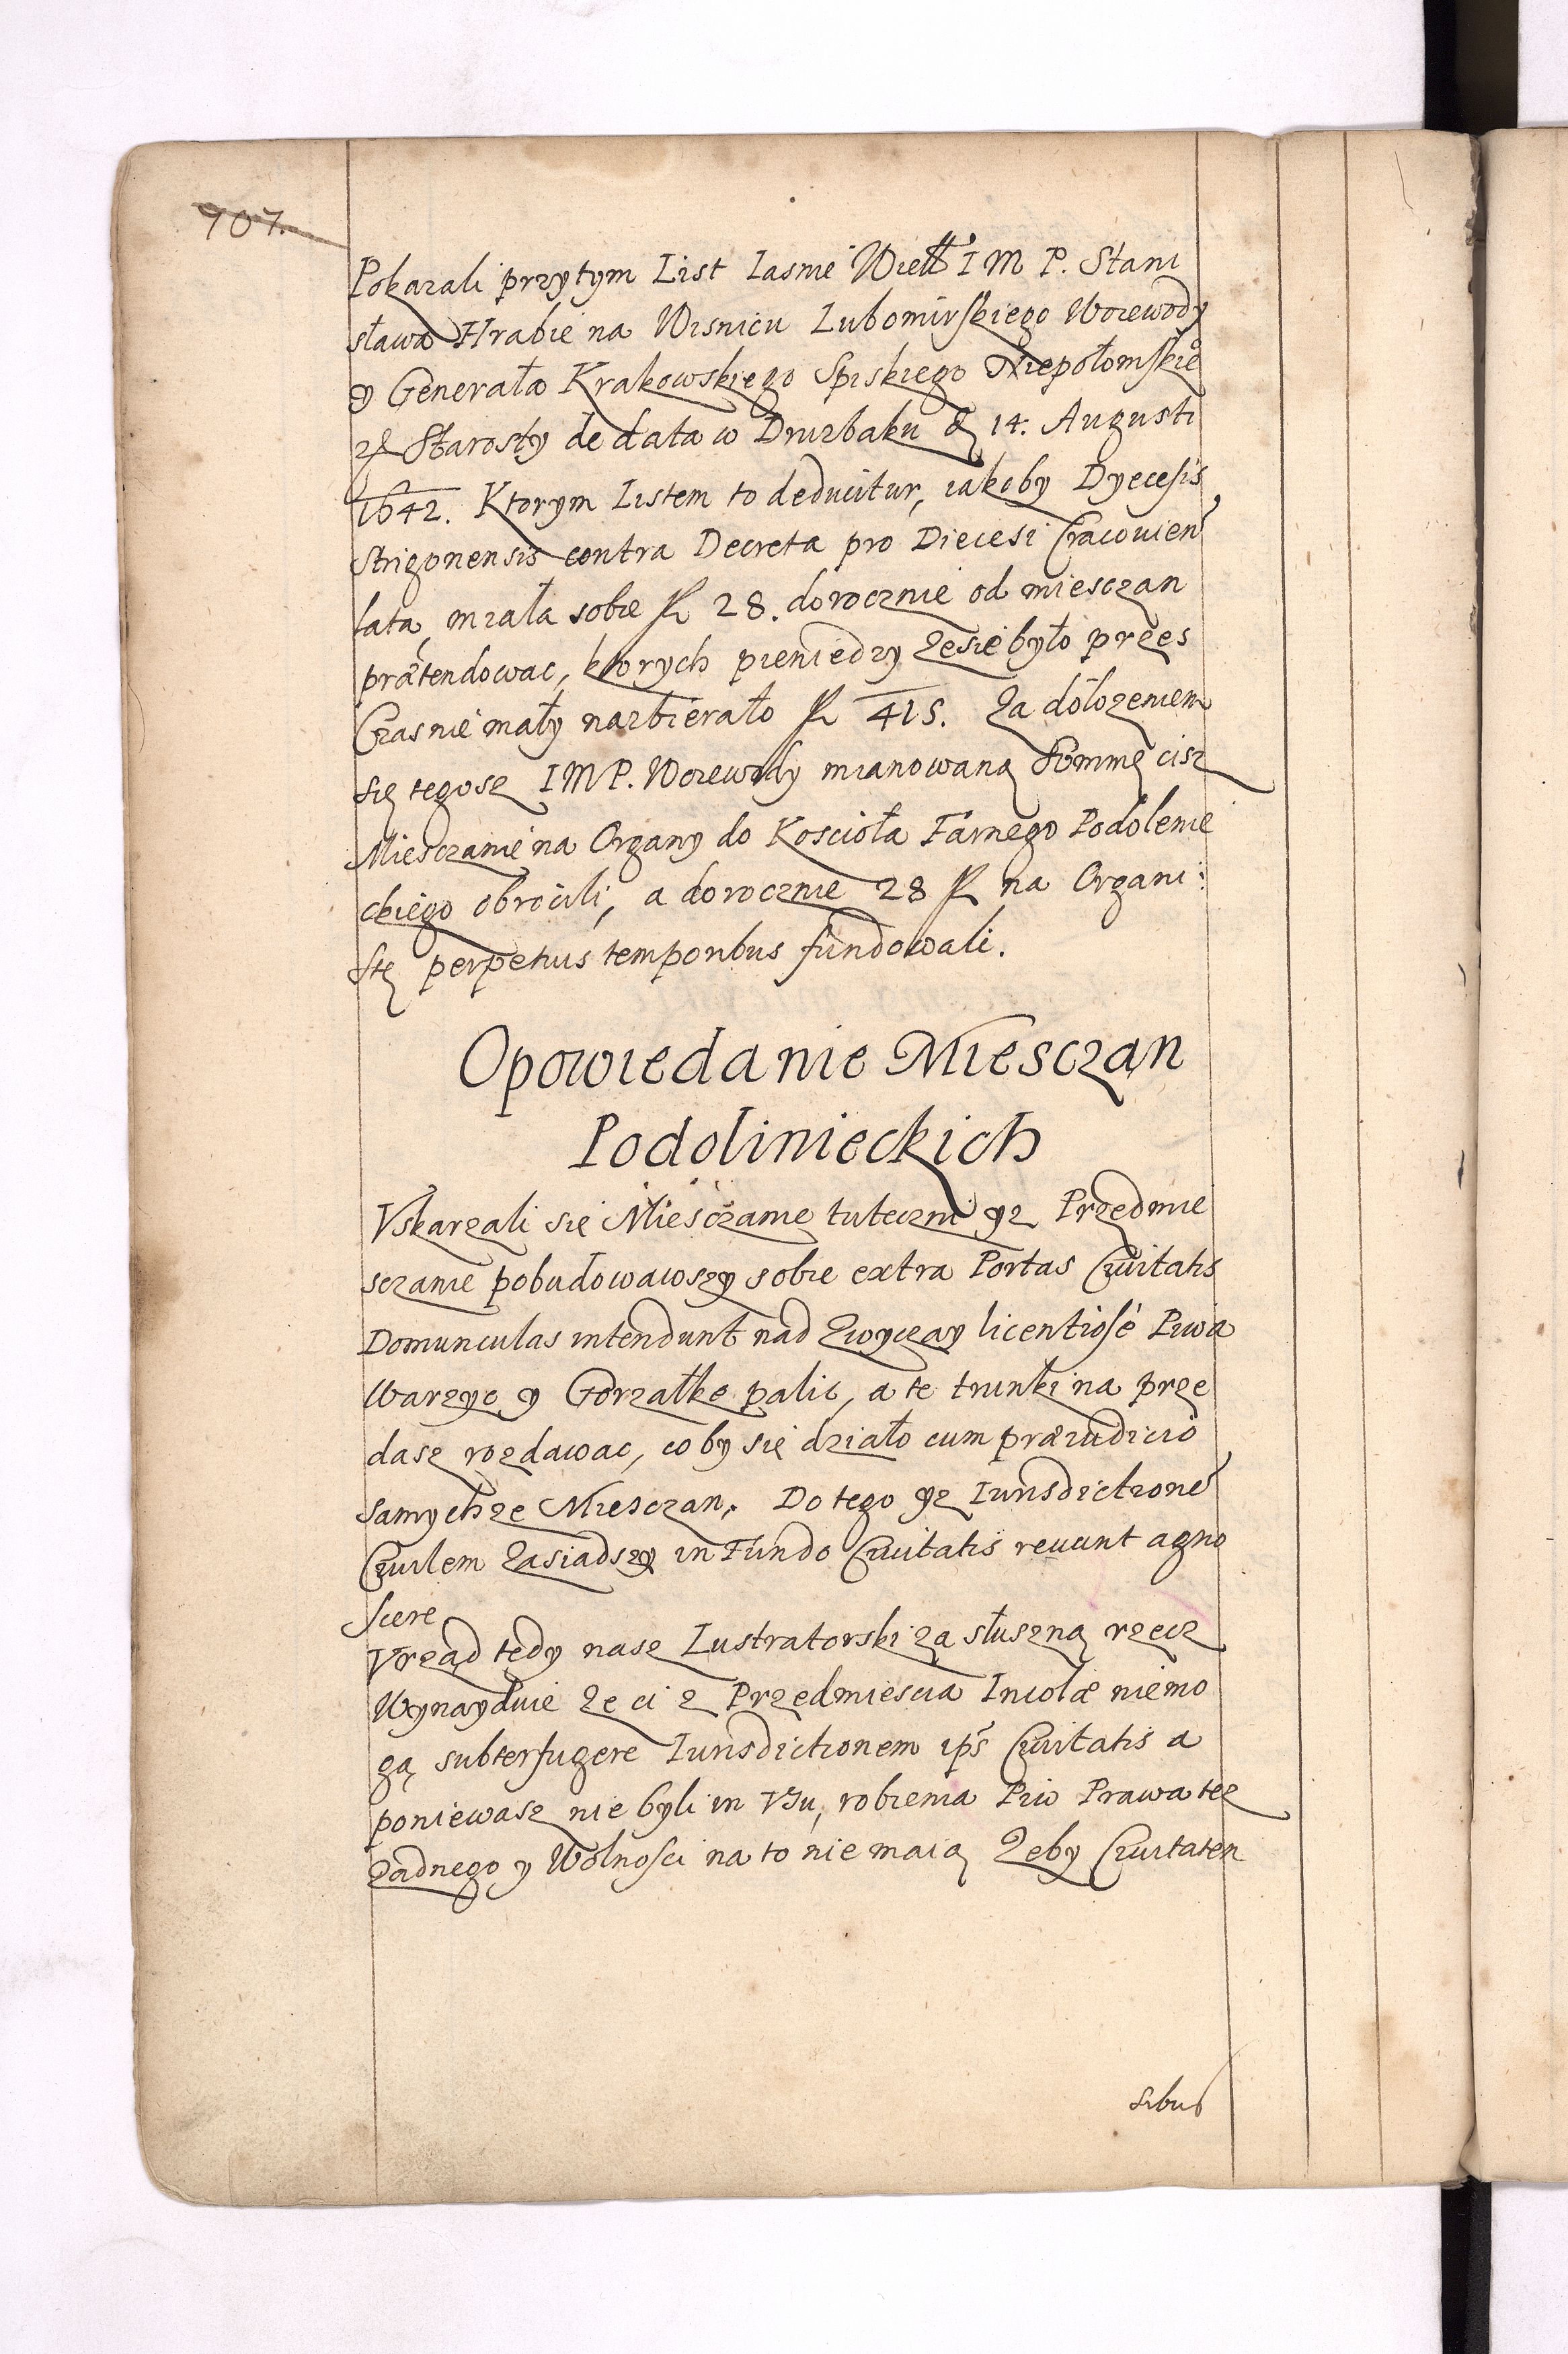 907.
Pokazali przytym List Iasnie Wiell I M P. Stani
sława Hrabie na Wisniczu Lubomirskiego Woiewody
y Generała Krakowskiego Spiskiego Niepołomskie
Starosty de data w Druzbaku 14. Augusti
1642. Ktorym Listem to deducitur, iakoby Dyecesis
Strigonensis contra Decreta pro Diecesi Cracovien
lata, miała sobie fl 28. dorocznie od miesczan
prætendowac, ktorych pieniedzy ze sie było przes
Czas nie mały nazbierało fl 415. Za dolozeniem
się tegosz I M P. Woiewody mianowaną Sommę cisz
Miesczanie na Organy do Kosciola Farnego Podolenie
ckiego obrocili, a dorocznie 28 fl na Organi:
stę perpetuis temporibus fundowali.
Opowiedanie Miesczan
Podolinieckich
Vskarzali się Miesczanie tuteczni yz Przedmie
sczanie pobudowawszy sobie extra Portas Civitatis
Domunculas intendunt nad Zwyczay licentiosé Piwa
Warzyc y Gorzałke palic, a te trunki na prze
dasz rozdawac, co by się działo cum præiudicio
samychze Miesczan. Do tego yz Iurisdictioné
Civilem Zasiadszy in Fundo Civitatis renuunt agno
scere
Vrząd tedy nasz Lustratorski za słuszną rzecz
Wynayduie ze ci z Przedmiescia Incolæ niemo
gą subterfugere Iurisdictionem ips Civitatis a
poniewasz nie byli in Vsu, robienia Piw Prawa tez
zadnego y Wolnosci na to nie maią Zeby Civitaten
sibus